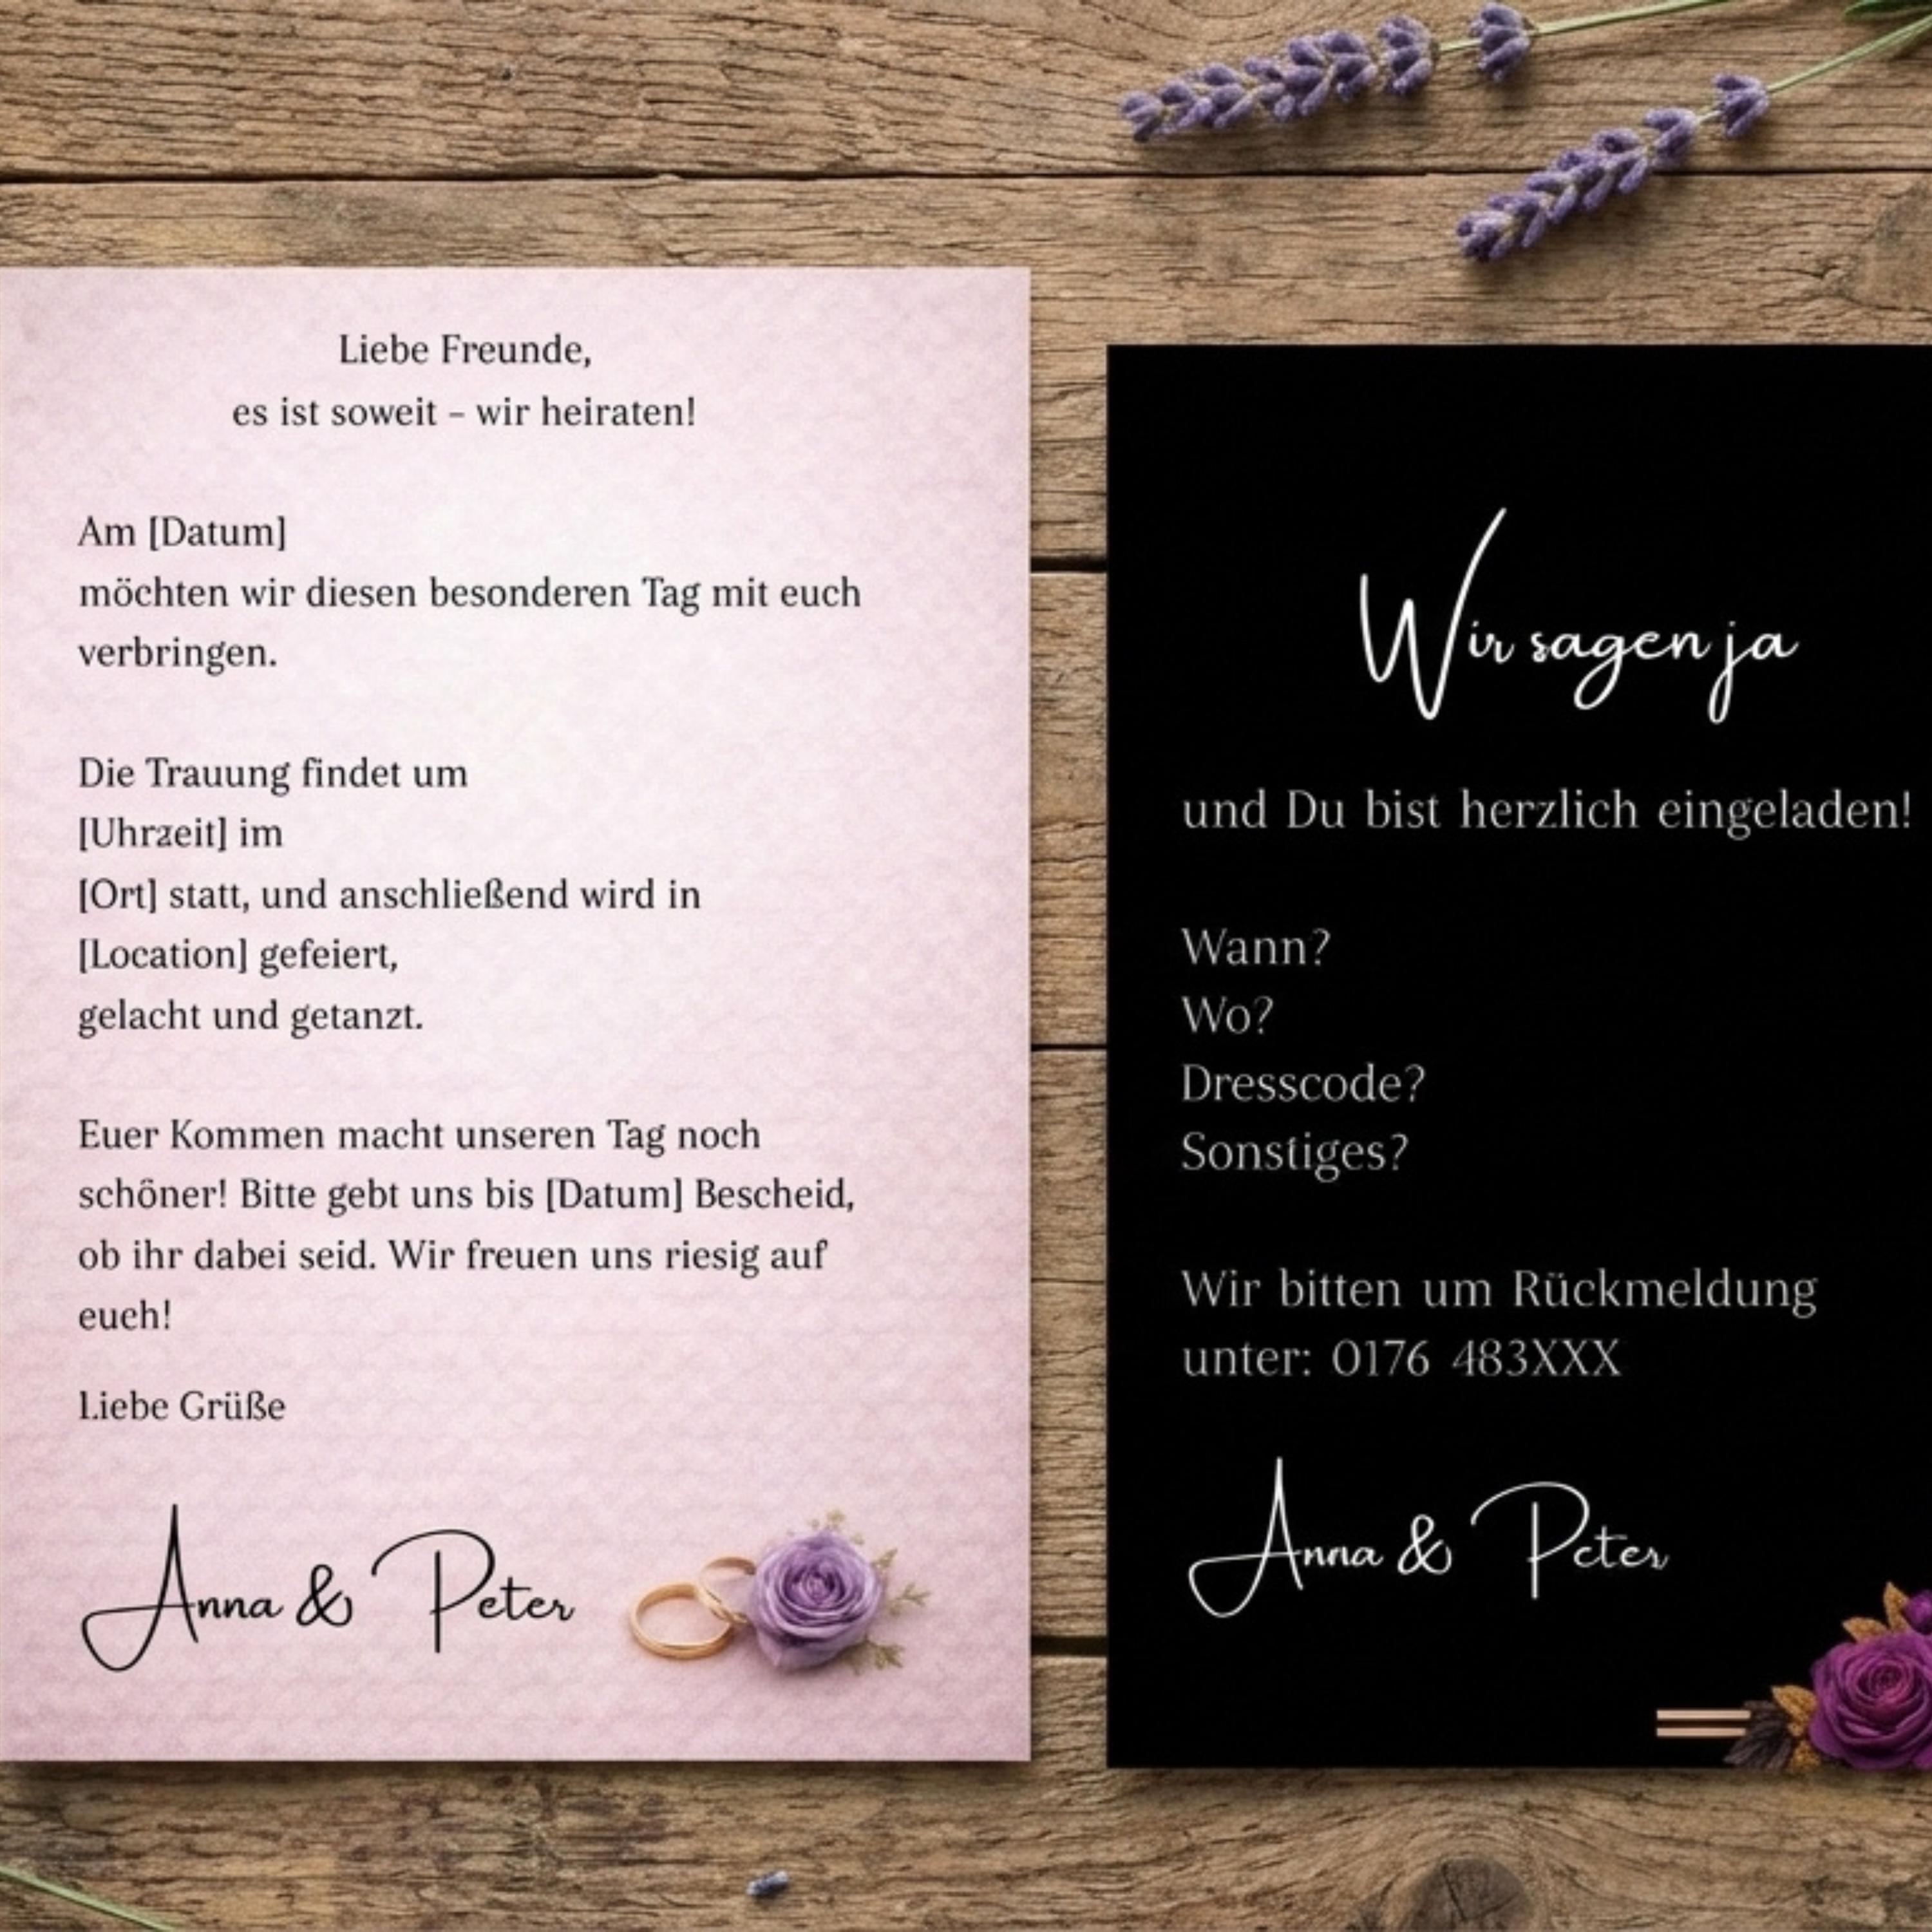 Liebe Freunde,
es ist soweit – wir heiraten!
Am [Datum]
möchten wir diesen besonderen Tag mit euch
verbringen.
Die Trauung findet um
[Uhrzeit] im
[Ort] statt, und anschließend wird in
[Location] gefeiert,
gelacht und getanzt.
Euer Kommen macht unseren Tag noch
schöner! Bitte gebt uns bis [Datum] Bescheid,
ob ihr dabei seid. Wir freuen uns riesig auf
euch!
Liebe Grüße
Anna & Peter
Wir sagen ja
und Du bist herzlich eingeladen!
Wann?
Wo?
Dresscode?
Sonstiges?
Wir bitten um Rückmeldung
unter: 0176 483XXX
Anna & Peter